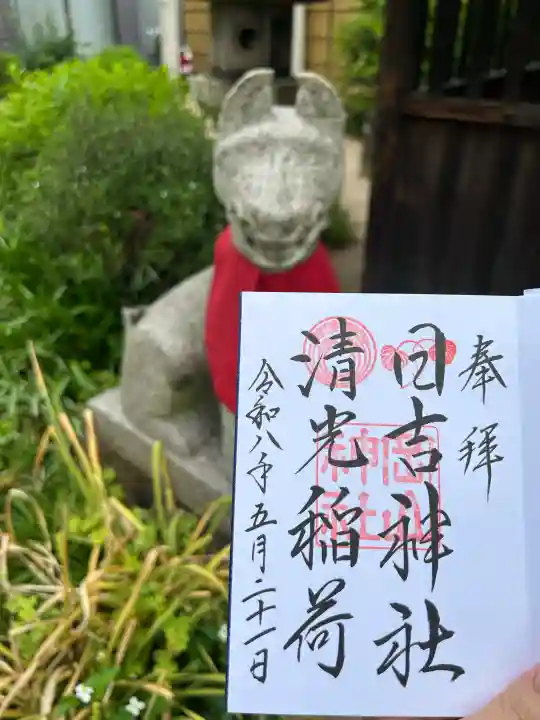 奉拝
日吉神社
清光稲荷
令和八年五月二十一日